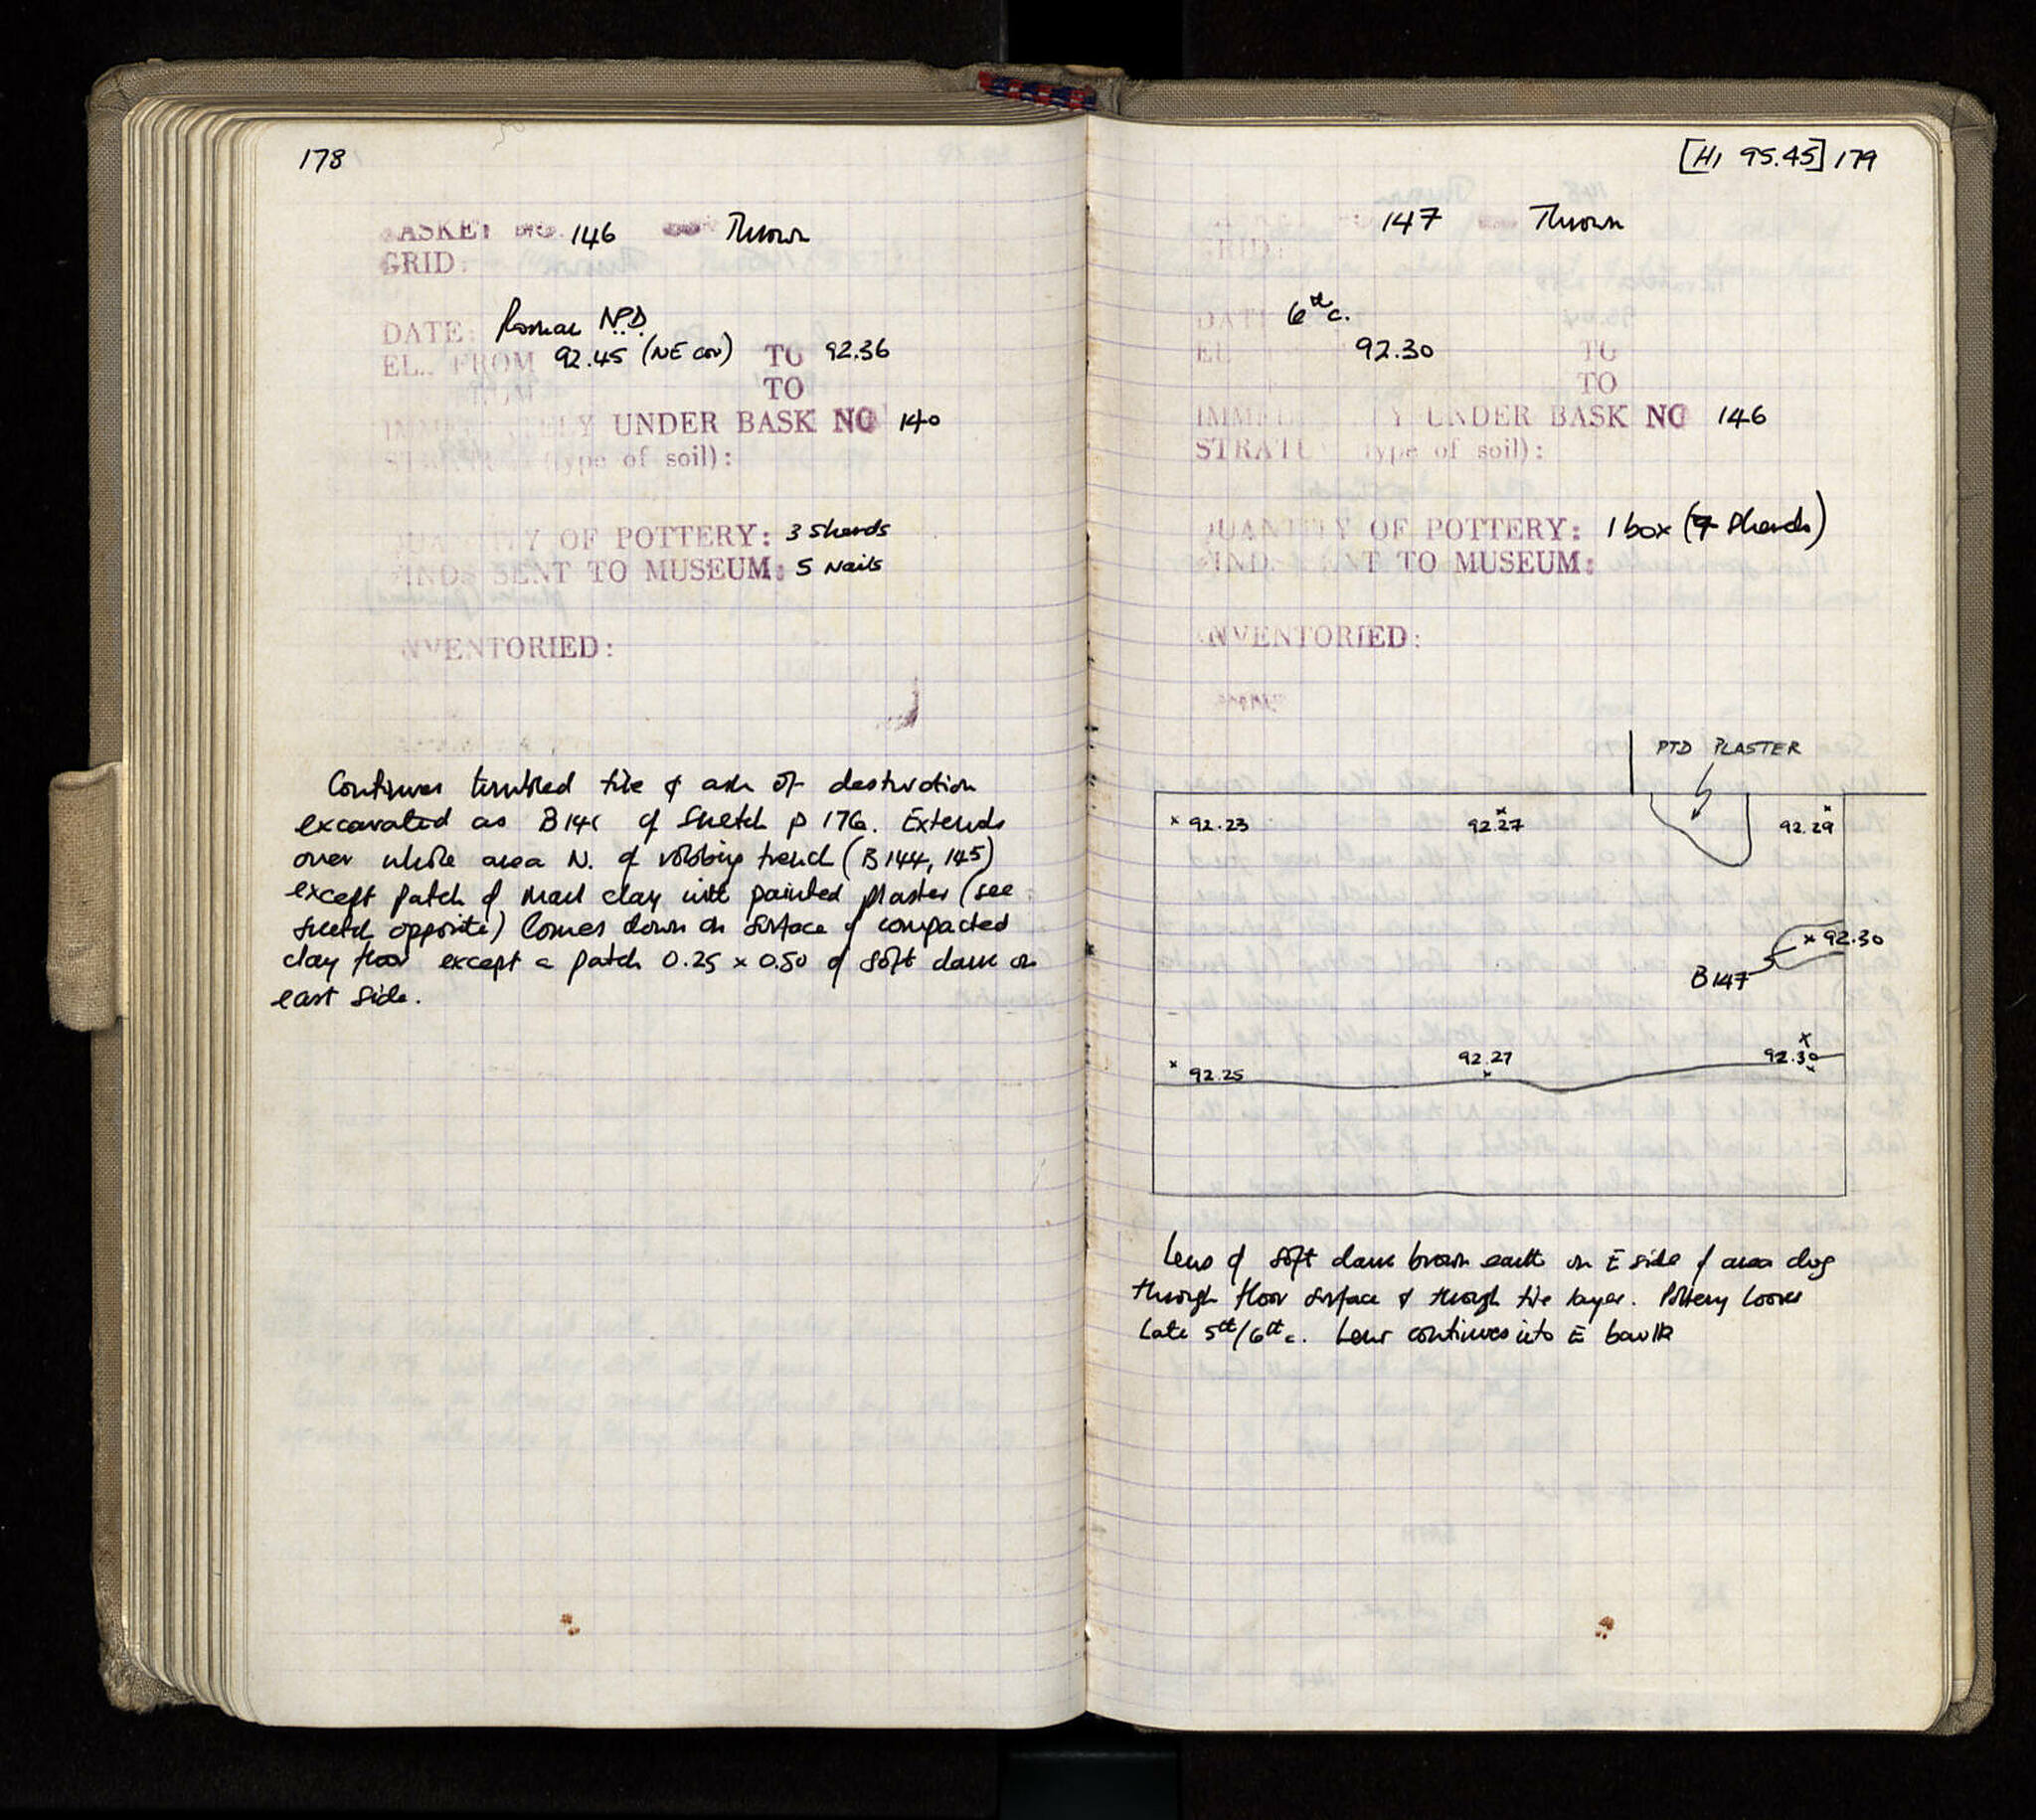 178
BASKET NO. 146 Thrown
GRID:
DATE: Roman N.D.
EL. FROM 92.45 (NE cor) TO 92.36
TO
IMMEDIATELY UNDER BASK NO 140
STRATUM (type of soil):
QUANTITY OF POTTERY: 3 Sherds
FINDS SENT TO MUSEUM: 5 Nails
INVENTORIED:
Continues tumbled tile & ash of destruction
excavated as B141 cf sketch p 176. Extends
over whole area N. of robbing trench (B144, 145)
except patch of marl clay with painted plaster (see
sketch opposite) Comes down on surface of compacted
clay floor except a patch 0.25 x 0.50 of soft dark on
east side.
[HI 95.45] 179
147 Thrown
GRID:
DATE 6th c.
EL 92.30 TO
TO
IMMEDIATELY UNDER BASK NO 146
STRATUM (type of soil):
QUANTITY OF POTTERY: 1 box (7 Sherds)
FINDS SENT TO MUSEUM:
INVENTORIED:
PTD PLASTER
x 92.23
x 92.27
x 92.29
x 92.30
B147
x 92.25
92.27 x
x 92.30 x
Lens of soft dark brown earth on E side of area dug
through floor surface & through tile layer. Pottery looks
Late 5th/6th c. Lens continues into E baulk